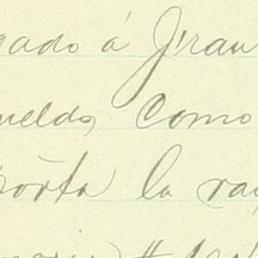 gado á Fran
ueldo, como
porta la ra